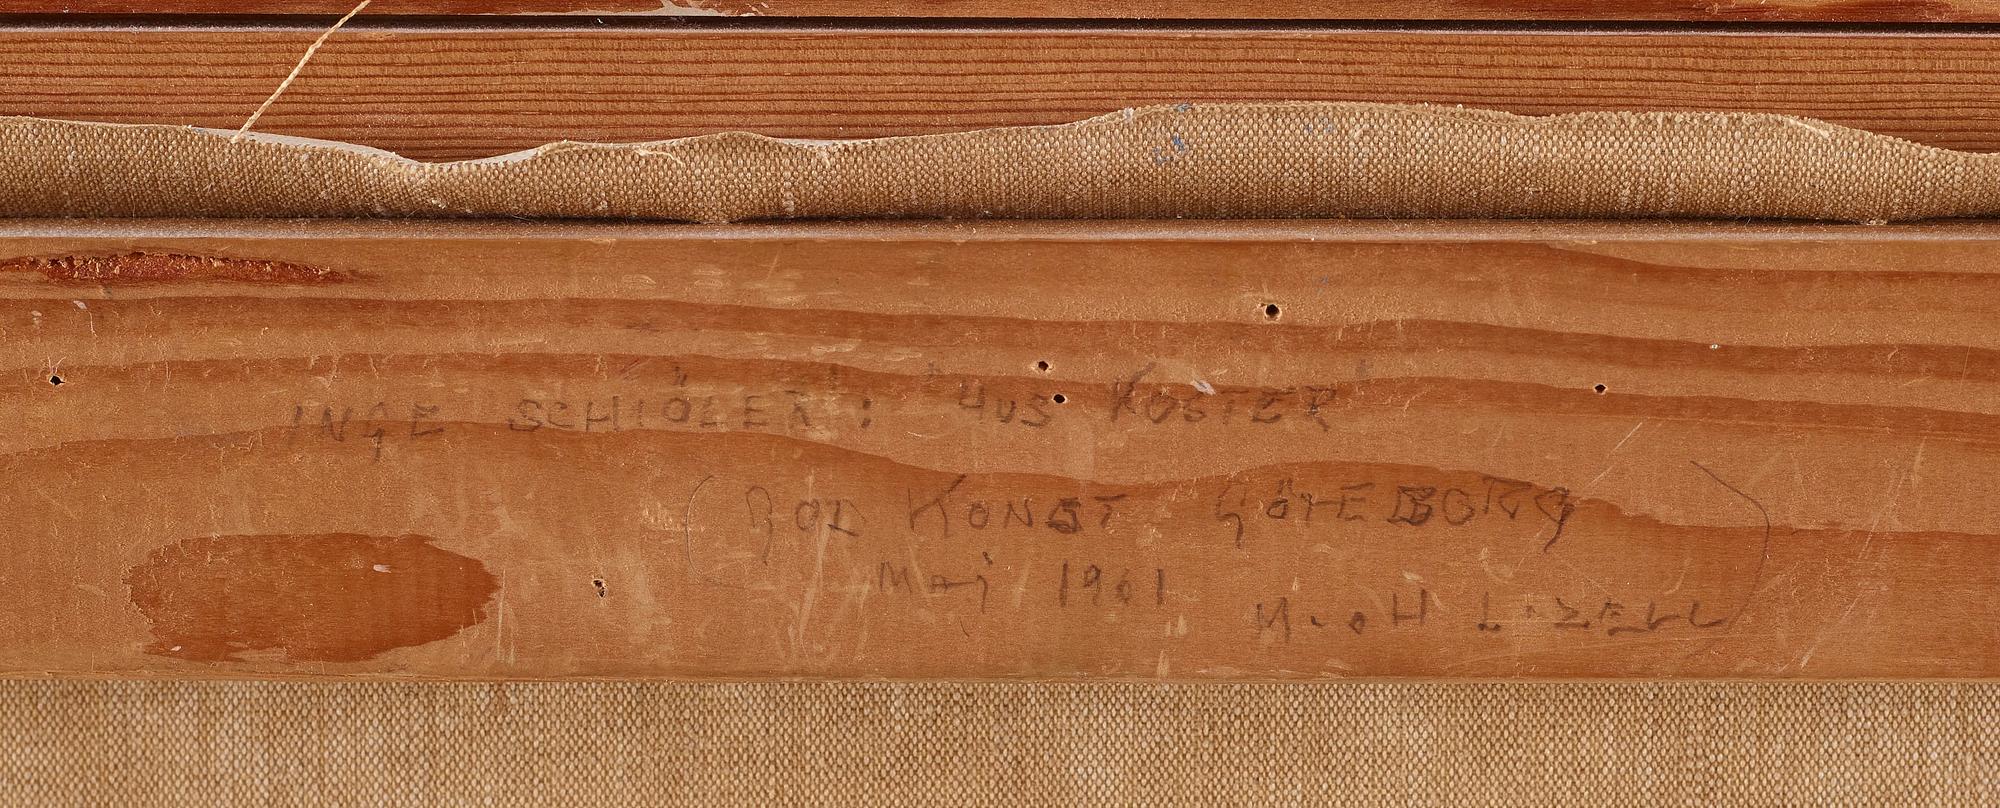 INGE SCHIÖLER: "HUS KOSTER"
(GOD KONST GÖTEBORG
Maj 1961
M. o H LIZELL)